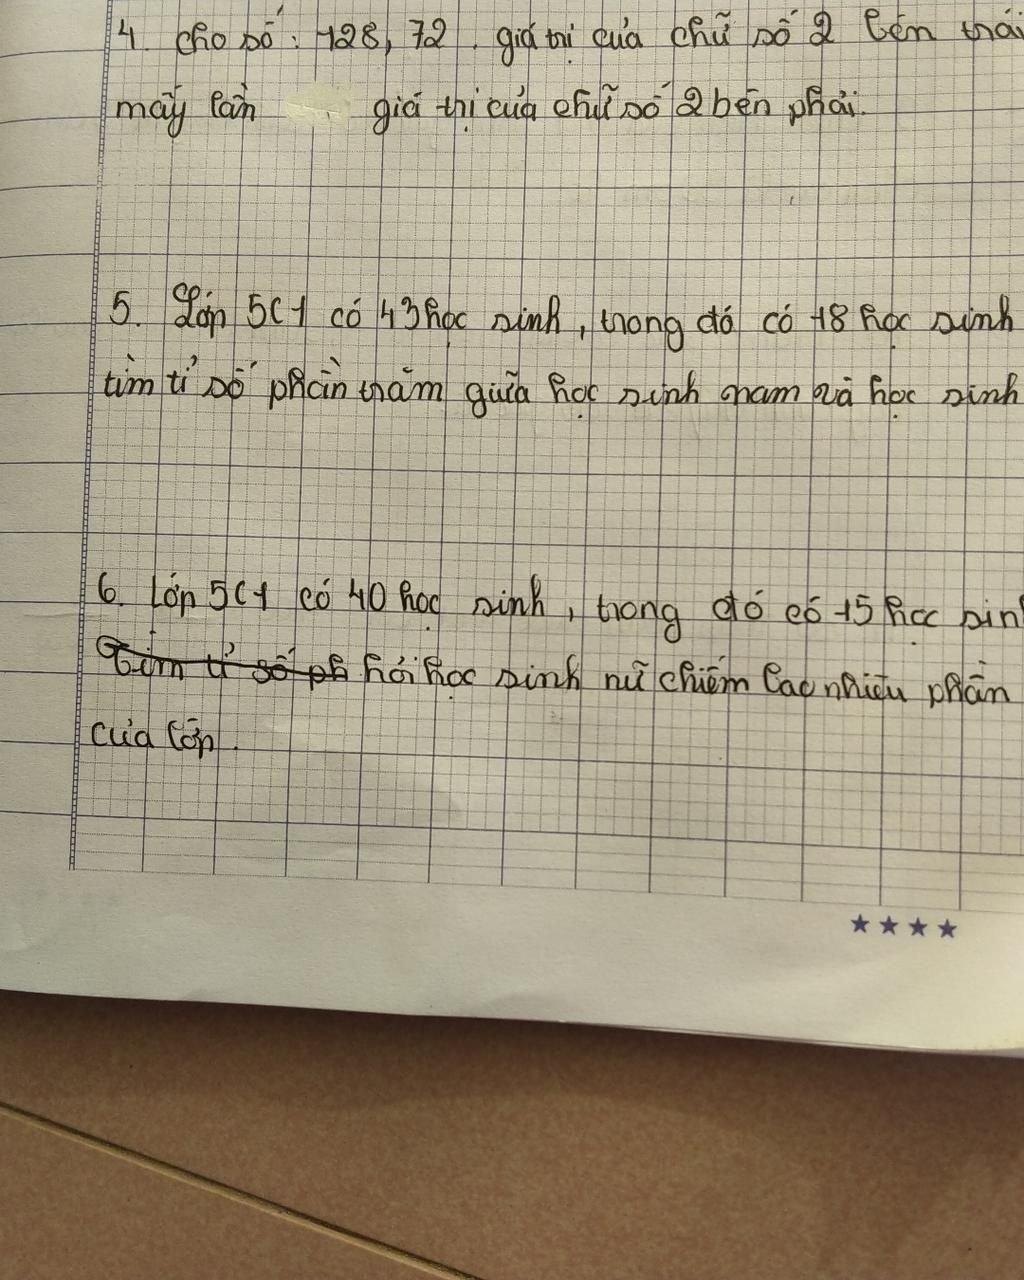 4. cho số: 128,72. giá trị của chữ số 2 bên trái
mấy lần giá thị của chữ số 2 bên phải.
5. Lớp 5C1 có 43 học sinh, trong đó có 18 học sinh
tìm tỉ số phần trăm giữa học sinh nam và học sinh
6. Lớp 5C1 có 40 học sinh, trong đó có 15 học sin
Tìm tỉ số ph hỏi học sinh nữ chiếm bao nhiêu phần
của lớp.